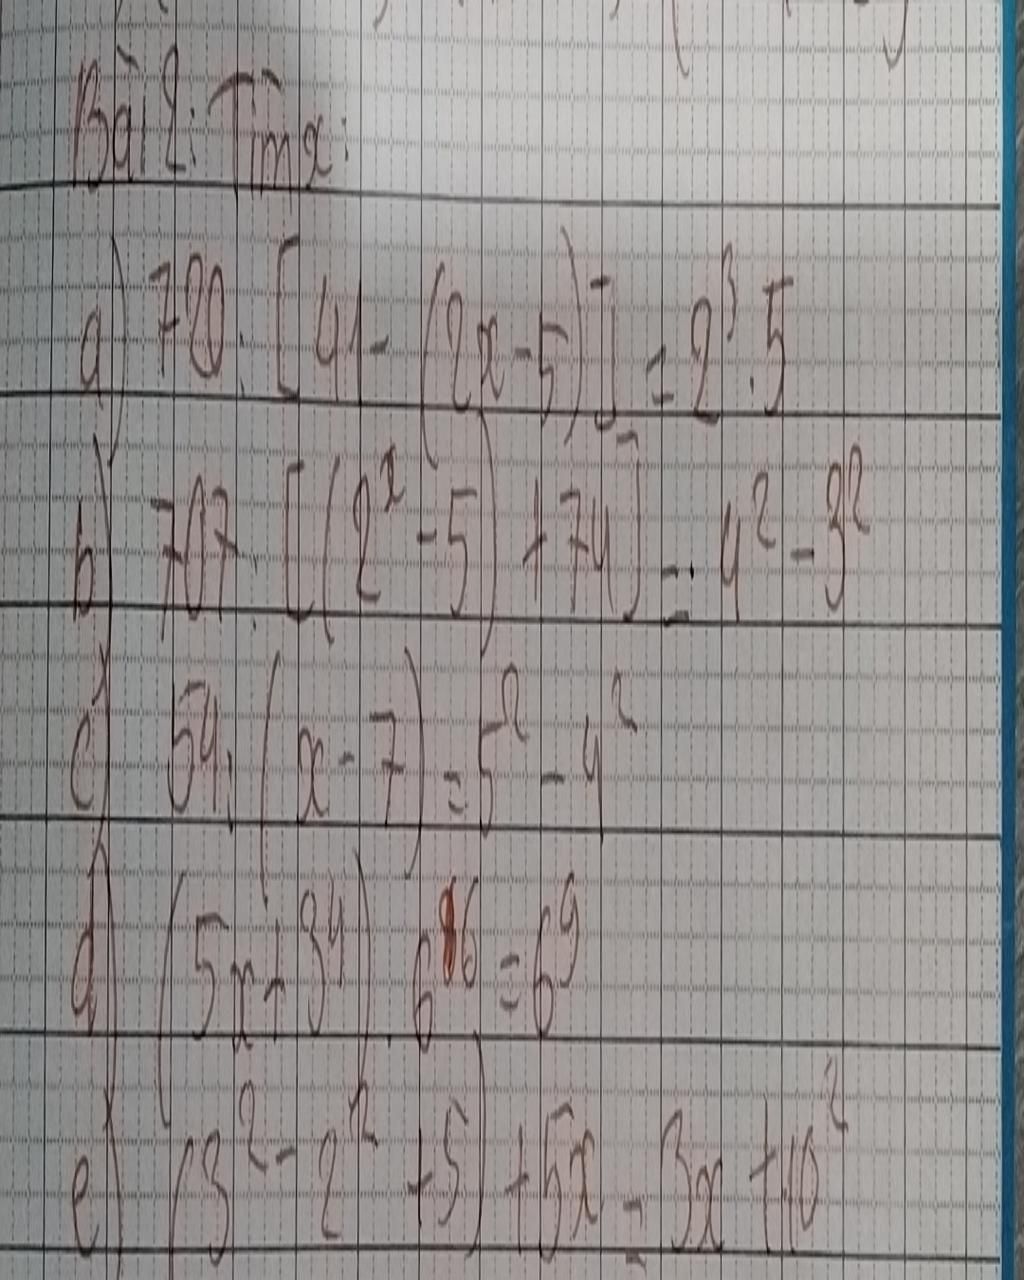 Bài 2: Tìm x:
a) 720 : [41 - (2x - 5)] = 2³.5
b) 707 : [(2ˣ - 5) + 74] = 4² - 3²
c) 54 : (x - 7) = 5² - 4²
d) (5x + 3⁴) . 6⁶ = 6⁹
e) (3² - 2² + 5) + 5x = 3x + 10²